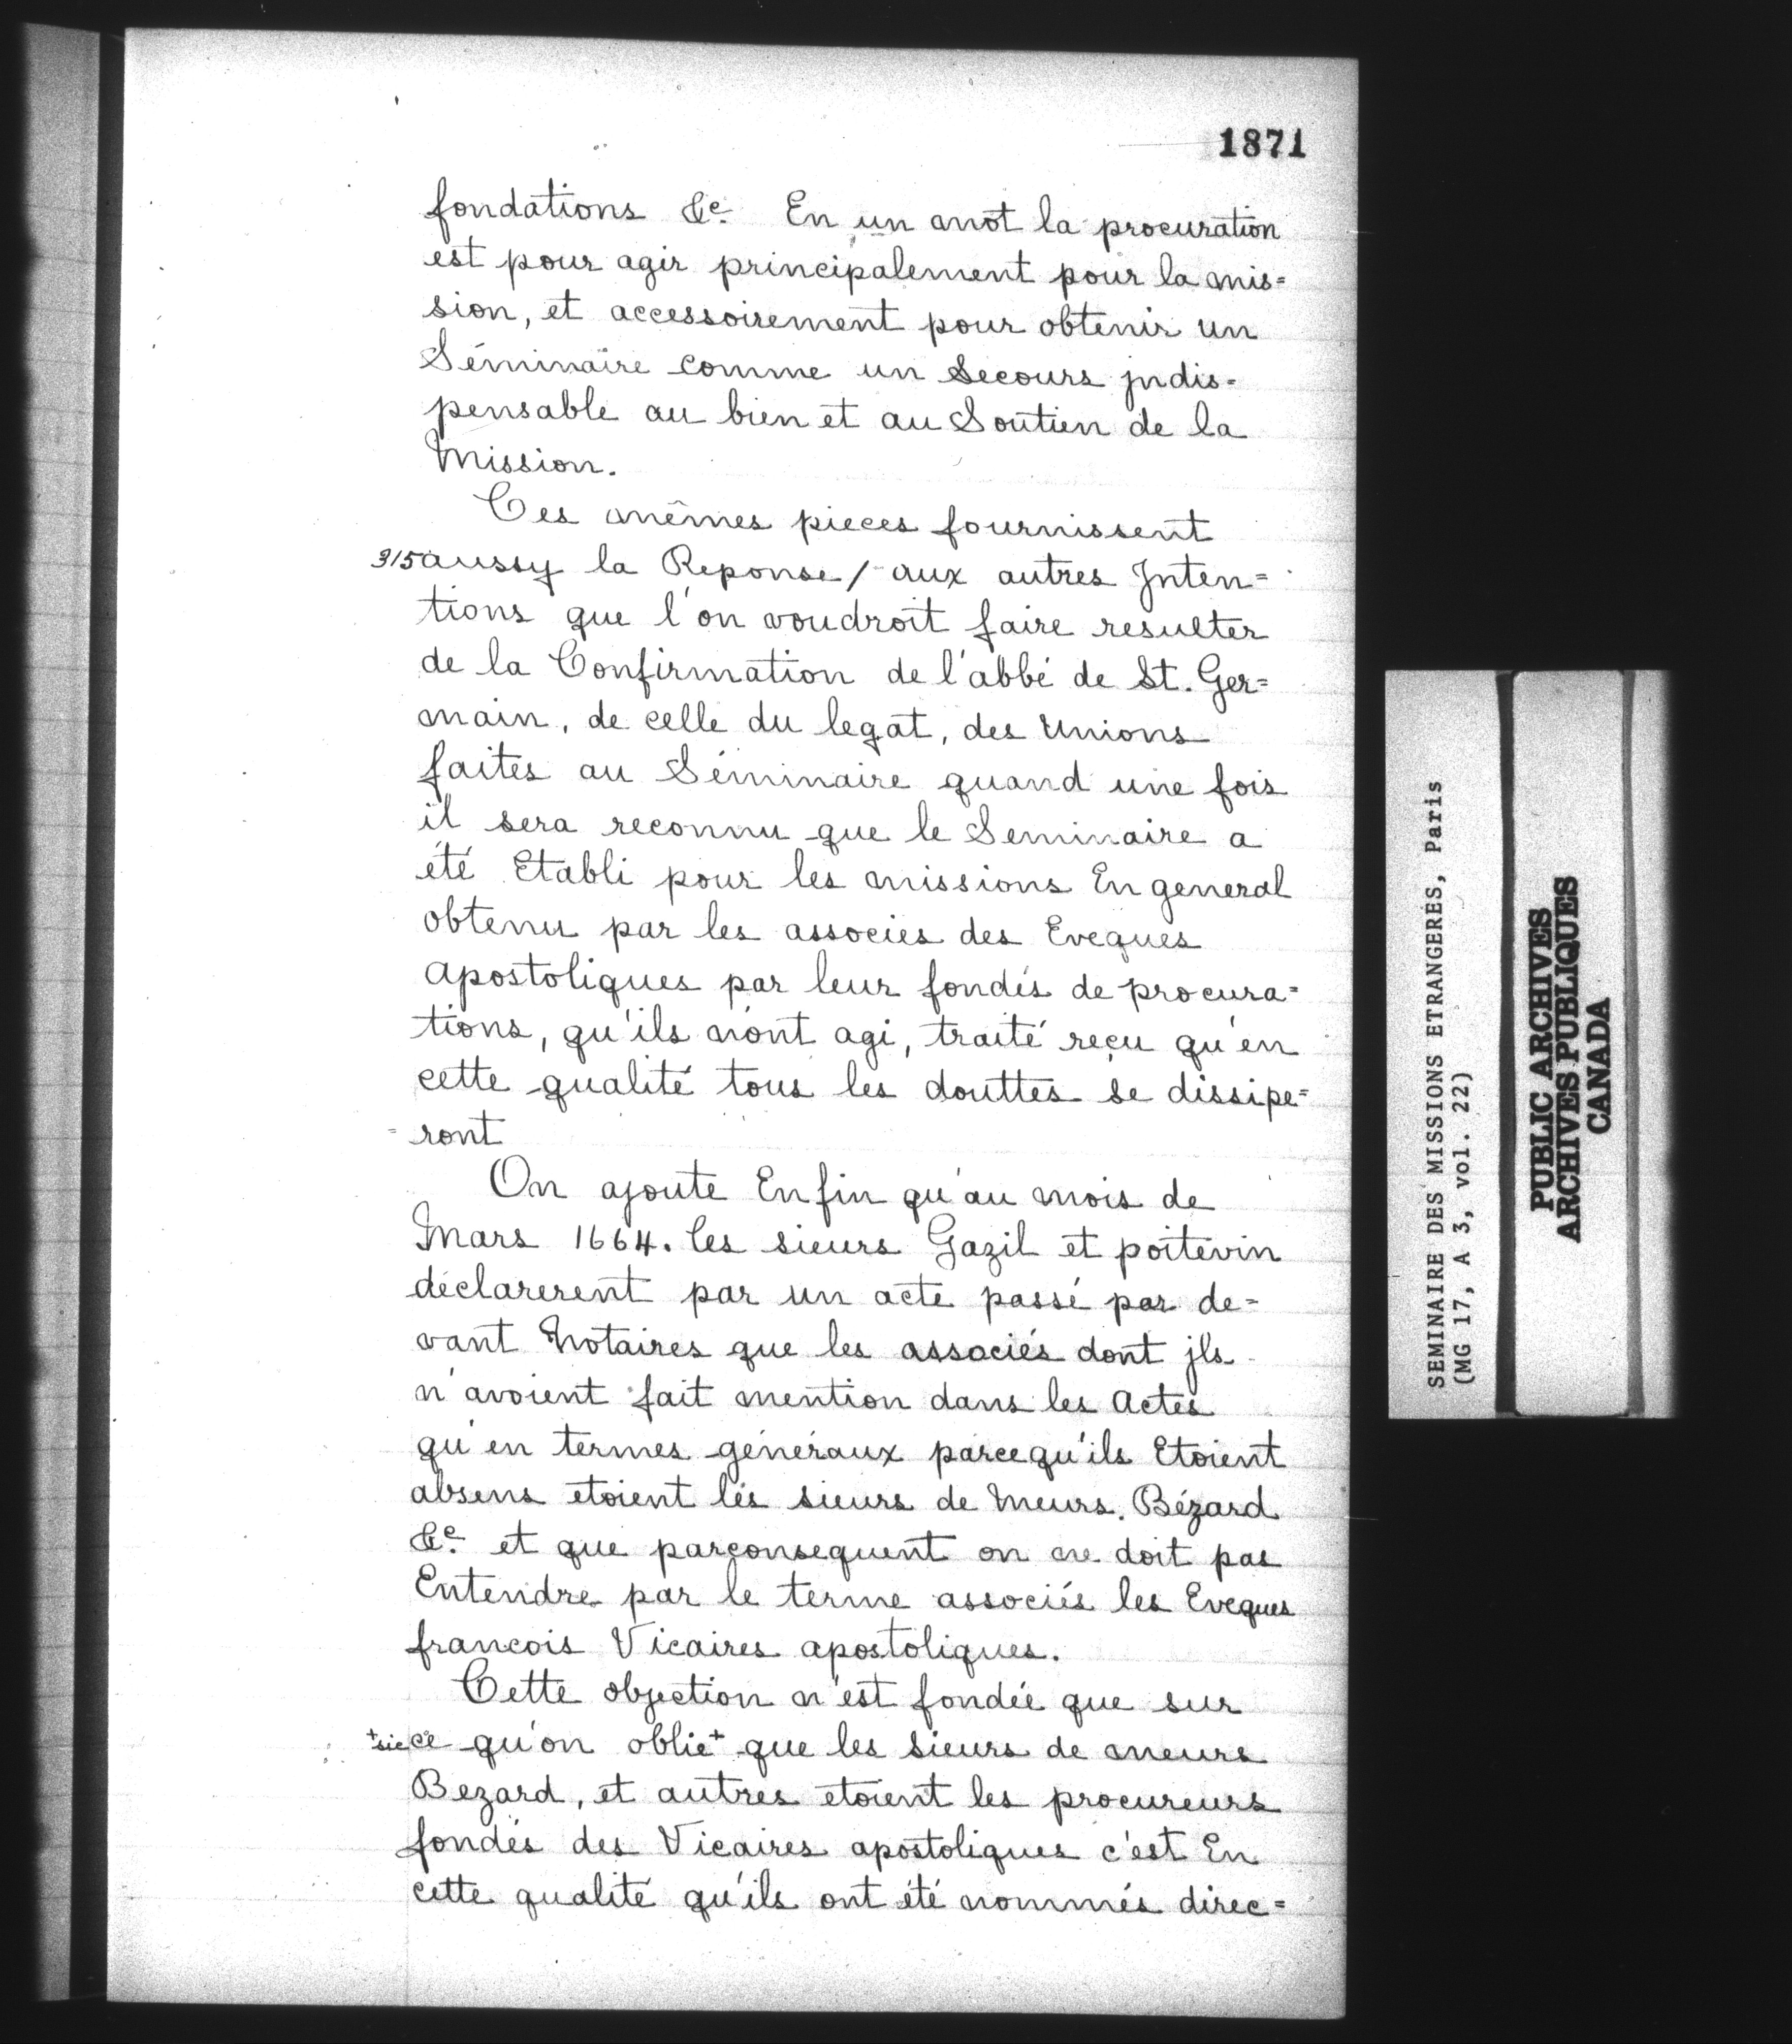 1871
fondations &c. En un mot la procuration
est pour agir principalement pour la mis=
sion, et accessoirement pour obtenir un
Séminaire comme un Secours jndis=
pensable au bien et au Soutien de la
Mission.
Ces mêmes pieces fournissent
315 aussy la Reponse / aux autres Jnten=
tions que l'on voudroit faire resulter
de la Confirmation de l'abbé de St. Ger=
main, de celle du legat, des Unions
faites au Séminaire quand une fois
il sera reconnu que le Seminaire a
été Etabli pour les missions En general
obtenu par les associés des Eveques
apostoliques par leur fondés de procura=
tions, qu'ils n'ont agi, traité reçu qu'en
cette qualité tous les douttes se dissipe=
=ront
On ajoute Enfin qu'au mois de
Mars 1664. les sieurs Gazil et poitevin
déclarerent par un acte passé par de=
vant Notaires que les associés dont jls
n'avoient fait mention dans les Actes
qu'en termes généraux parcequ'ils Etoient
absens etoient les sieurs de Meurs. Bézard
&c. et que parconsequent on ne doit pas
Entendre par le terme associés les Eveques
francois Vicaires apostoliques.
Cette objection n'est fondée que sur
+sic ce qu'on oblie+ que les Sieurs de meurs
Bezard, et autres etoient les procureurs
fondés des Vicaires apostoliques c'est En
cette qualité qu'ils ont été nommés direc=
SEMINAIRE DES MISSIONS ETRANGERES, Paris
(MG 17, A 3, vol. 22)
PUBLIC ARCHIVES
ARCHIVES PUBLIQUES
CANADA